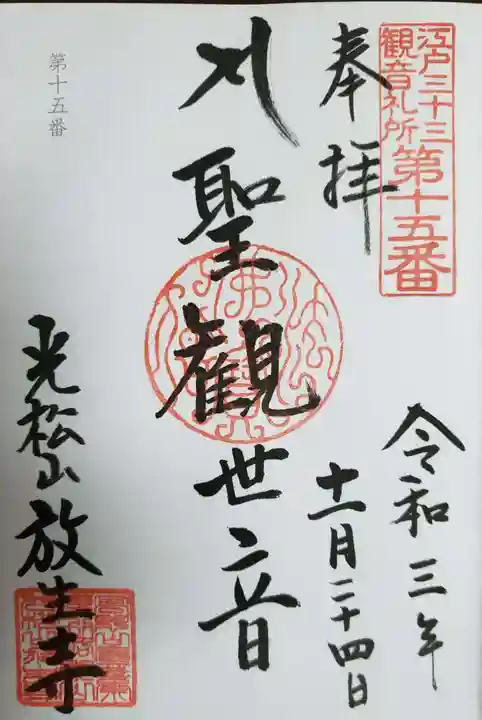 江戸三十三
観音礼所
第十五番
奉拝
令和三年
十一月二十四日
聖観世音
光松山放生寺
第十五番